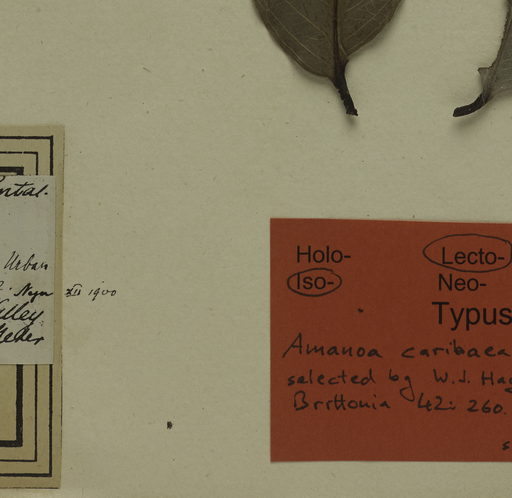 Urban
XII 1900
Holo-
Lecto-
Iso-
Neo-
Typus
Amanoa caribaea
selected by W.J. Hay
Brittonia 42: 260.
s